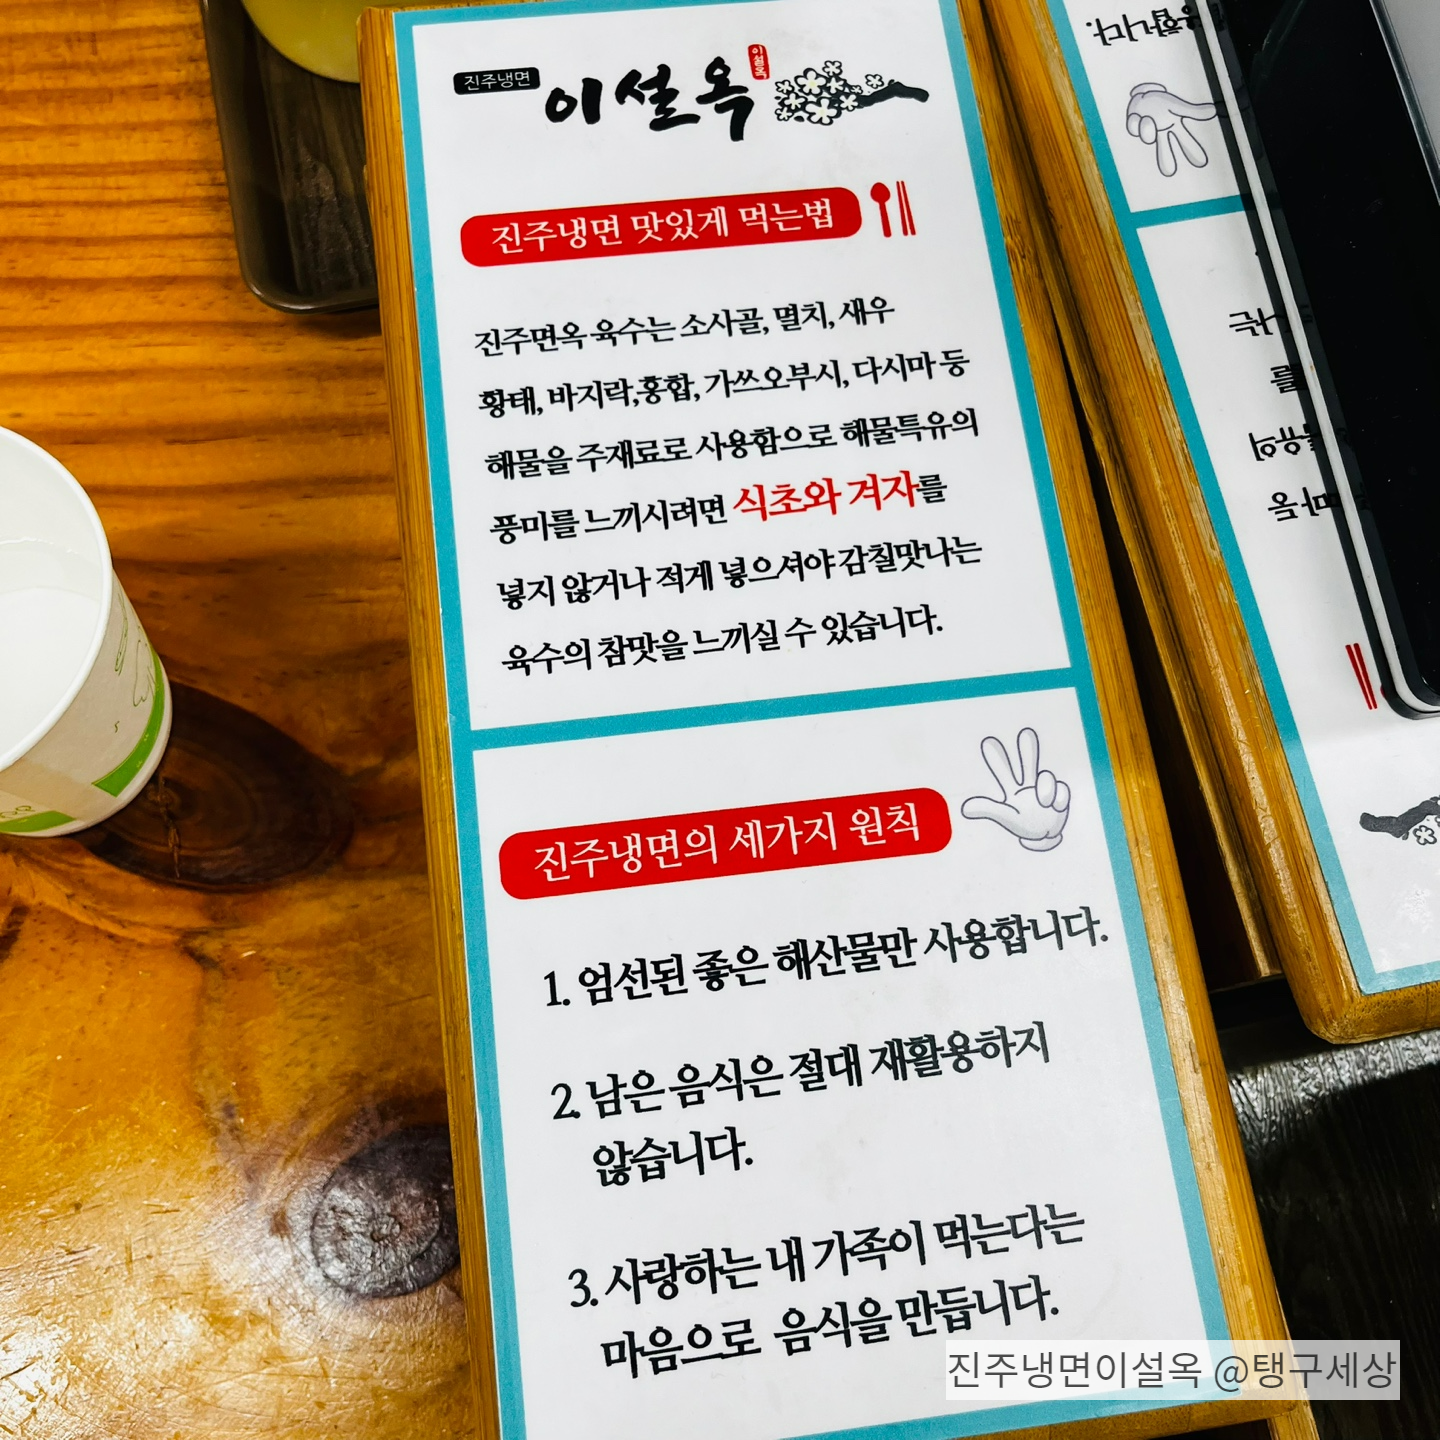 진주냉면
이설옥
이설옥
진주냉면 맛있게 먹는법
진주면옥 육수는 소사골, 멸치, 새우
황태, 바지락,홍합, 가쓰오부시, 다시마 등
해물을 주재료로 사용함으로 해물특유의
풍미를 느끼시려면 식초와 겨자를
넣지 않거나 적게 넣으셔야 감칠맛나는
육수의 참맛을 느끼실 수 있습니다.
진주냉면의 세가지 원칙
1. 엄선된 좋은 해산물만 사용합니다.
2. 남은 음식은 절대 재활용하지
않습니다.
3. 사랑하는 내 가족이 먹는다는
마음으로 음식을 만듭니다.
진주냉면이설옥 @탱구세상